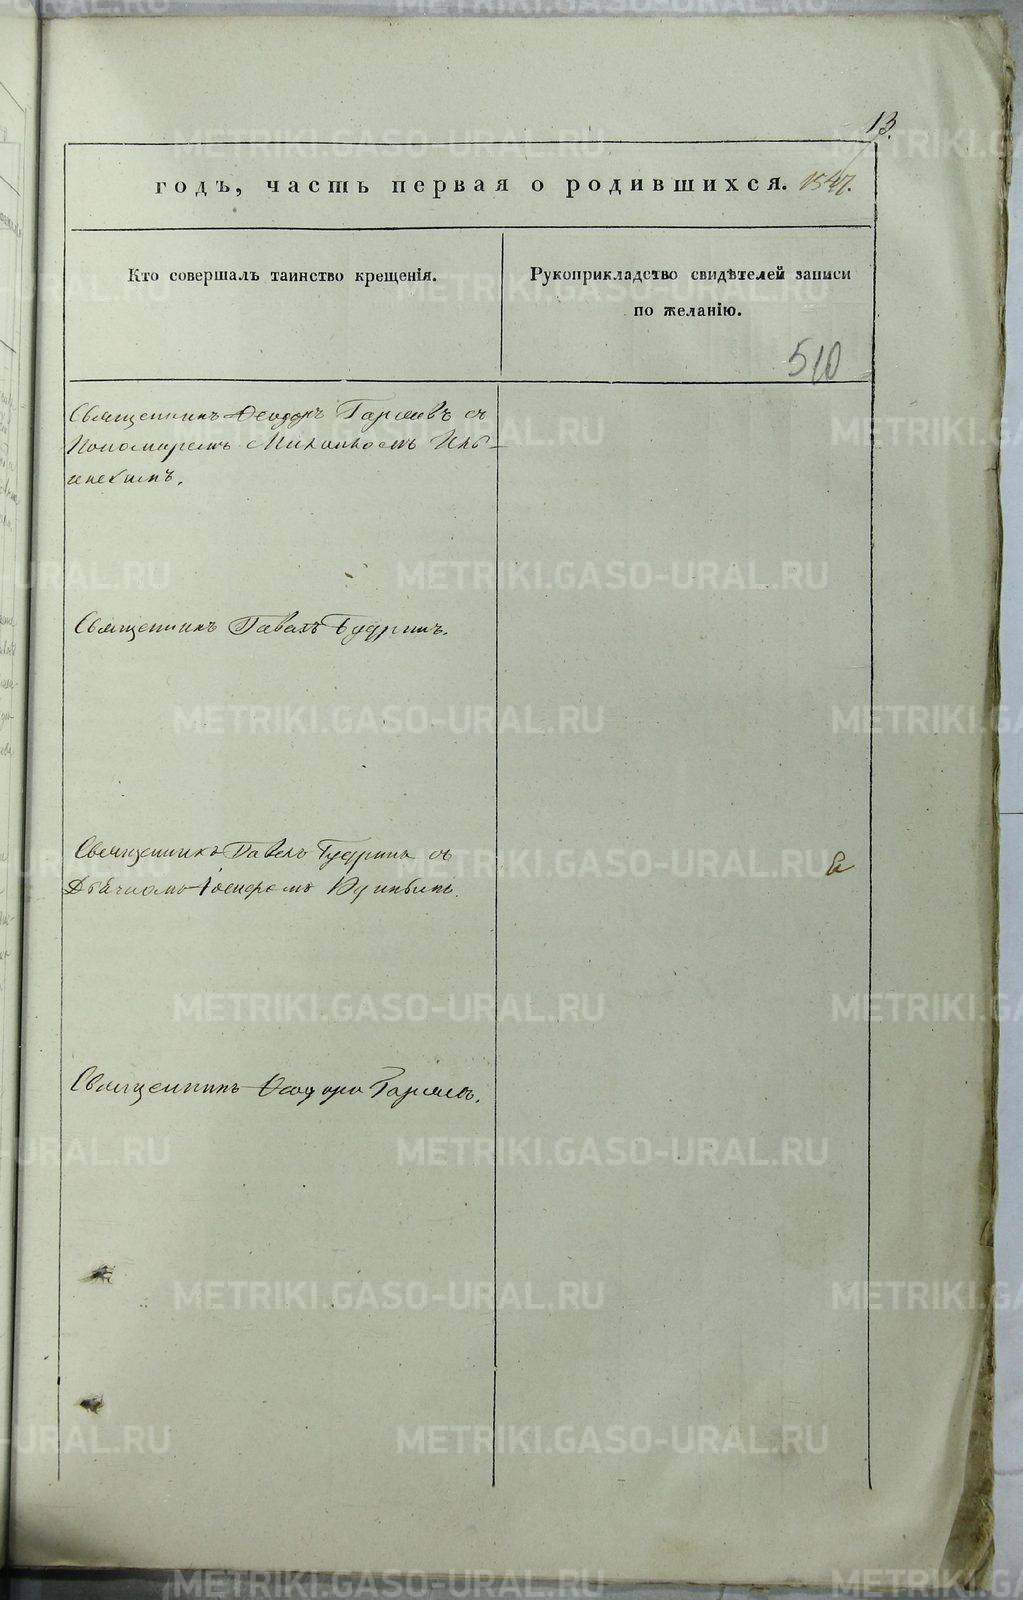 13.
годъ, часть первая о родившихся. 1547.
Кто совершалъ таинство крещенія.
Рукоприкладство свидѣтелей записи
по желанію.
510
Священникъ Ѳеодоръ Гаряевъ съ
Пономаремъ Михаиломъ
Священникъ Павелъ Будринъ.
Священникъ Павелъ Будринъ съ
Дьячкомъ Іосифомъ
Священникъ Ѳеодоръ Гаряевъ.
METRIKI.GASO-URAL.RU